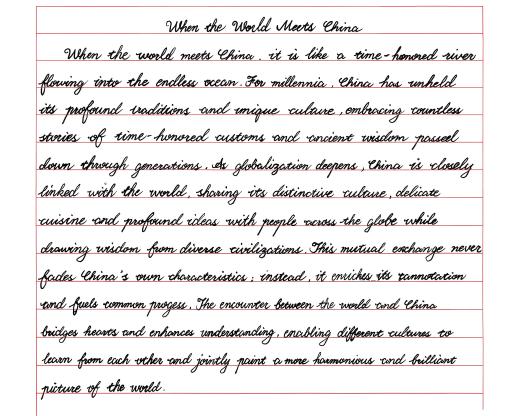 When the World Meets China
When the world meets China, it is like a time-honored river
flowing into the endless ocean. For millennia, China has unheld
its profound traditions and unique culture, embracing countless
stories of time-honored customs and ancient wisdom passed
down through generations. As globalization deepens, China is closely
linked with the world, sharing its distinctive culture, delicate
cuisine and profound ideas with people across the globe while
drawing wisdom from diverse civilizations. This mutual exchange never
fades China's own characteristics; instead, it enriches its connotation
and fuels common progess. The encounter between the world and China
bridges hearts and enhances understanding, enabling different cultures to
learn from each other and jointly paint a more harmonious and brilliant
picture of the world.